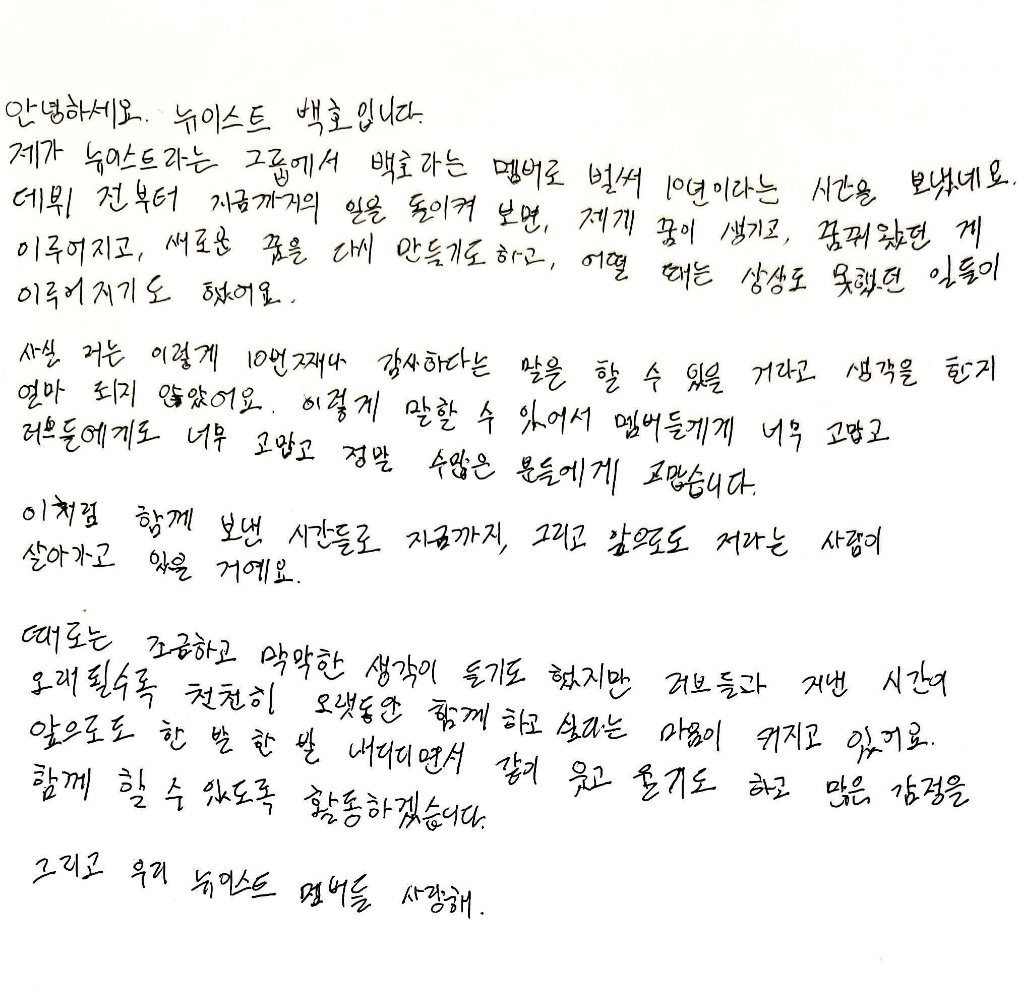 안녕하세요. 뉴이스트 백호입니다.
제가 뉴이스트라는 그룹에서 백호라는 멤버로 벌써 10년이라는 시간을 보냈네요.
데뷔 전부터 지금까지의 일을 돌이켜 보면, 제게 꿈이 생기고, 꿈꿔왔던 게
이루어지고, 새로운 꿈을 다시 만들기도 하고, 어떨 때는 상상도 못했던 일들이
이루어지기도 했어요.
사실 저는 이렇게 10번째나 감사하다는 말을 할 수 있을 거라고 생각을 한지
얼마 되지 않았어요. 이렇게 말할 수 있어서 멤버들에게 너무 고맙고
러브들에게도 너무 고맙고 정말 수많은 분들에게 고맙습니다.
이처럼 함께 보낸 시간들로 지금까지, 그리고 앞으로도 저라는 사람이
살아가고 있을 거예요.
때로는 조급하고 막막한 생각이 들기도 했지만 러브들과 지낸 시간이
오래될수록 천천히 오랫동안 함께 하고 싶다는 마음이 커지고 있어요.
앞으로도 한 발 한 발 내디디면서 같이 웃고 울기도 하고 많은 감정을
함께 할 수 있도록 활동하겠습니다.
그리고 우리 뉴이스트 멤버들 사랑해.